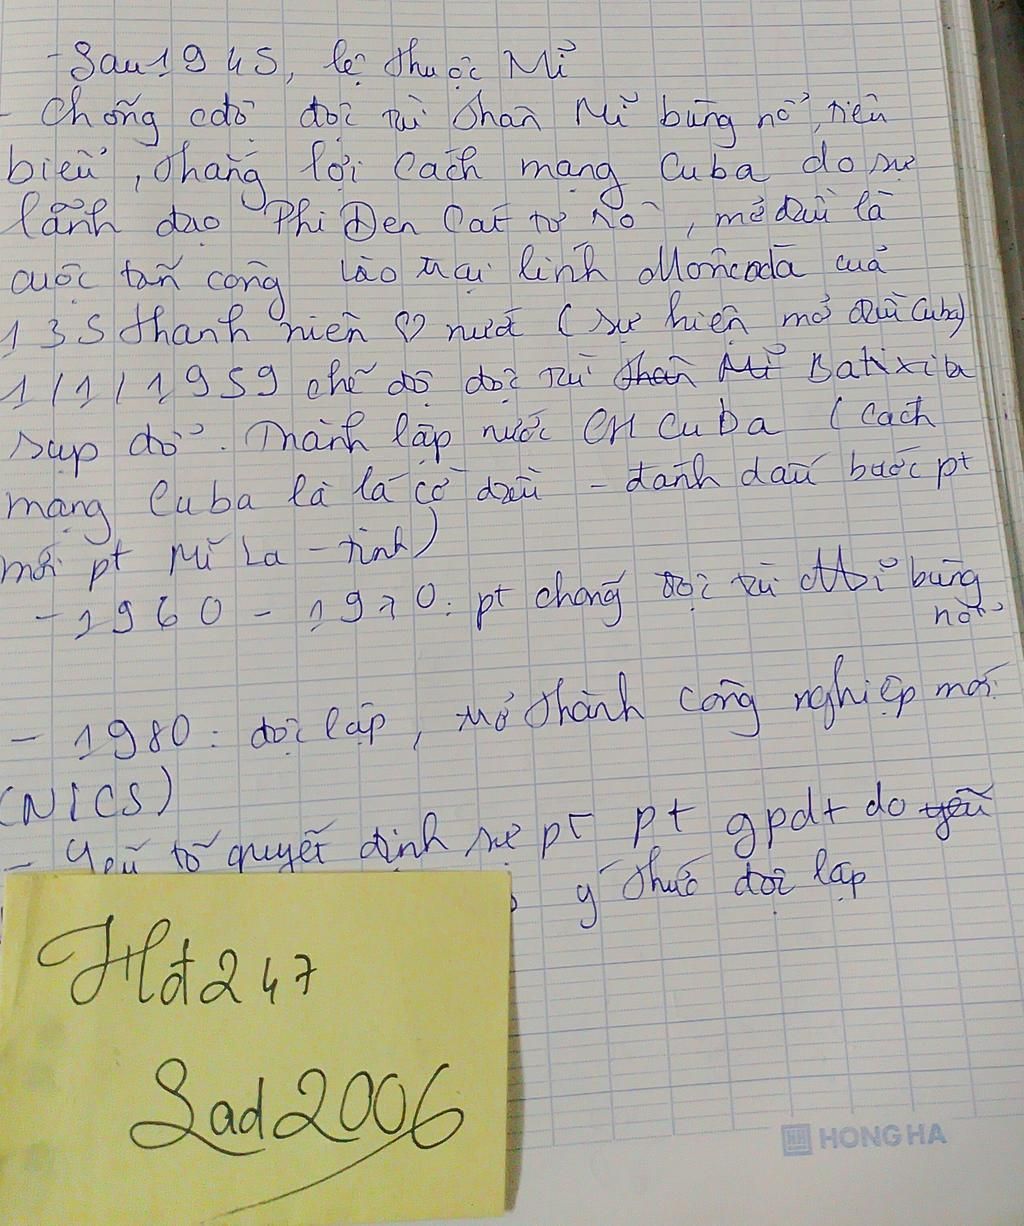 - Sau 1945, lệ thuộc Mĩ
- Chống cđộ độc tài thân Mĩ bùng nổ, tiêu
biểu, thắng lợi Cách mạng Cuba do sự
lãnh đạo Phi Đen Cat tơ rô, mở đầu là
cuộc tấn công vào trại lính Moncada của
135 thanh niên ♡ nước (sự kiện mở đầu Cuba)
1/1/1959 chế độ độc tài thân Mĩ Batixita
sụp đổ. Thành lập nước CH Cuba (Cách
mạng Cuba là lá cờ đầu - đánh dấu bước pt
mới pt Mĩ La-tinh)
- 1960 - 1970: pt chống độc tài Mĩ bùng
nổ
- 1980: độc lập, trở thành công nghiệp mới
(NICS)
- Yếu tố quyết định sự pt pt gpdt do yếu
ý thức độc lập
Hđ247
Sad2006
HONG HA